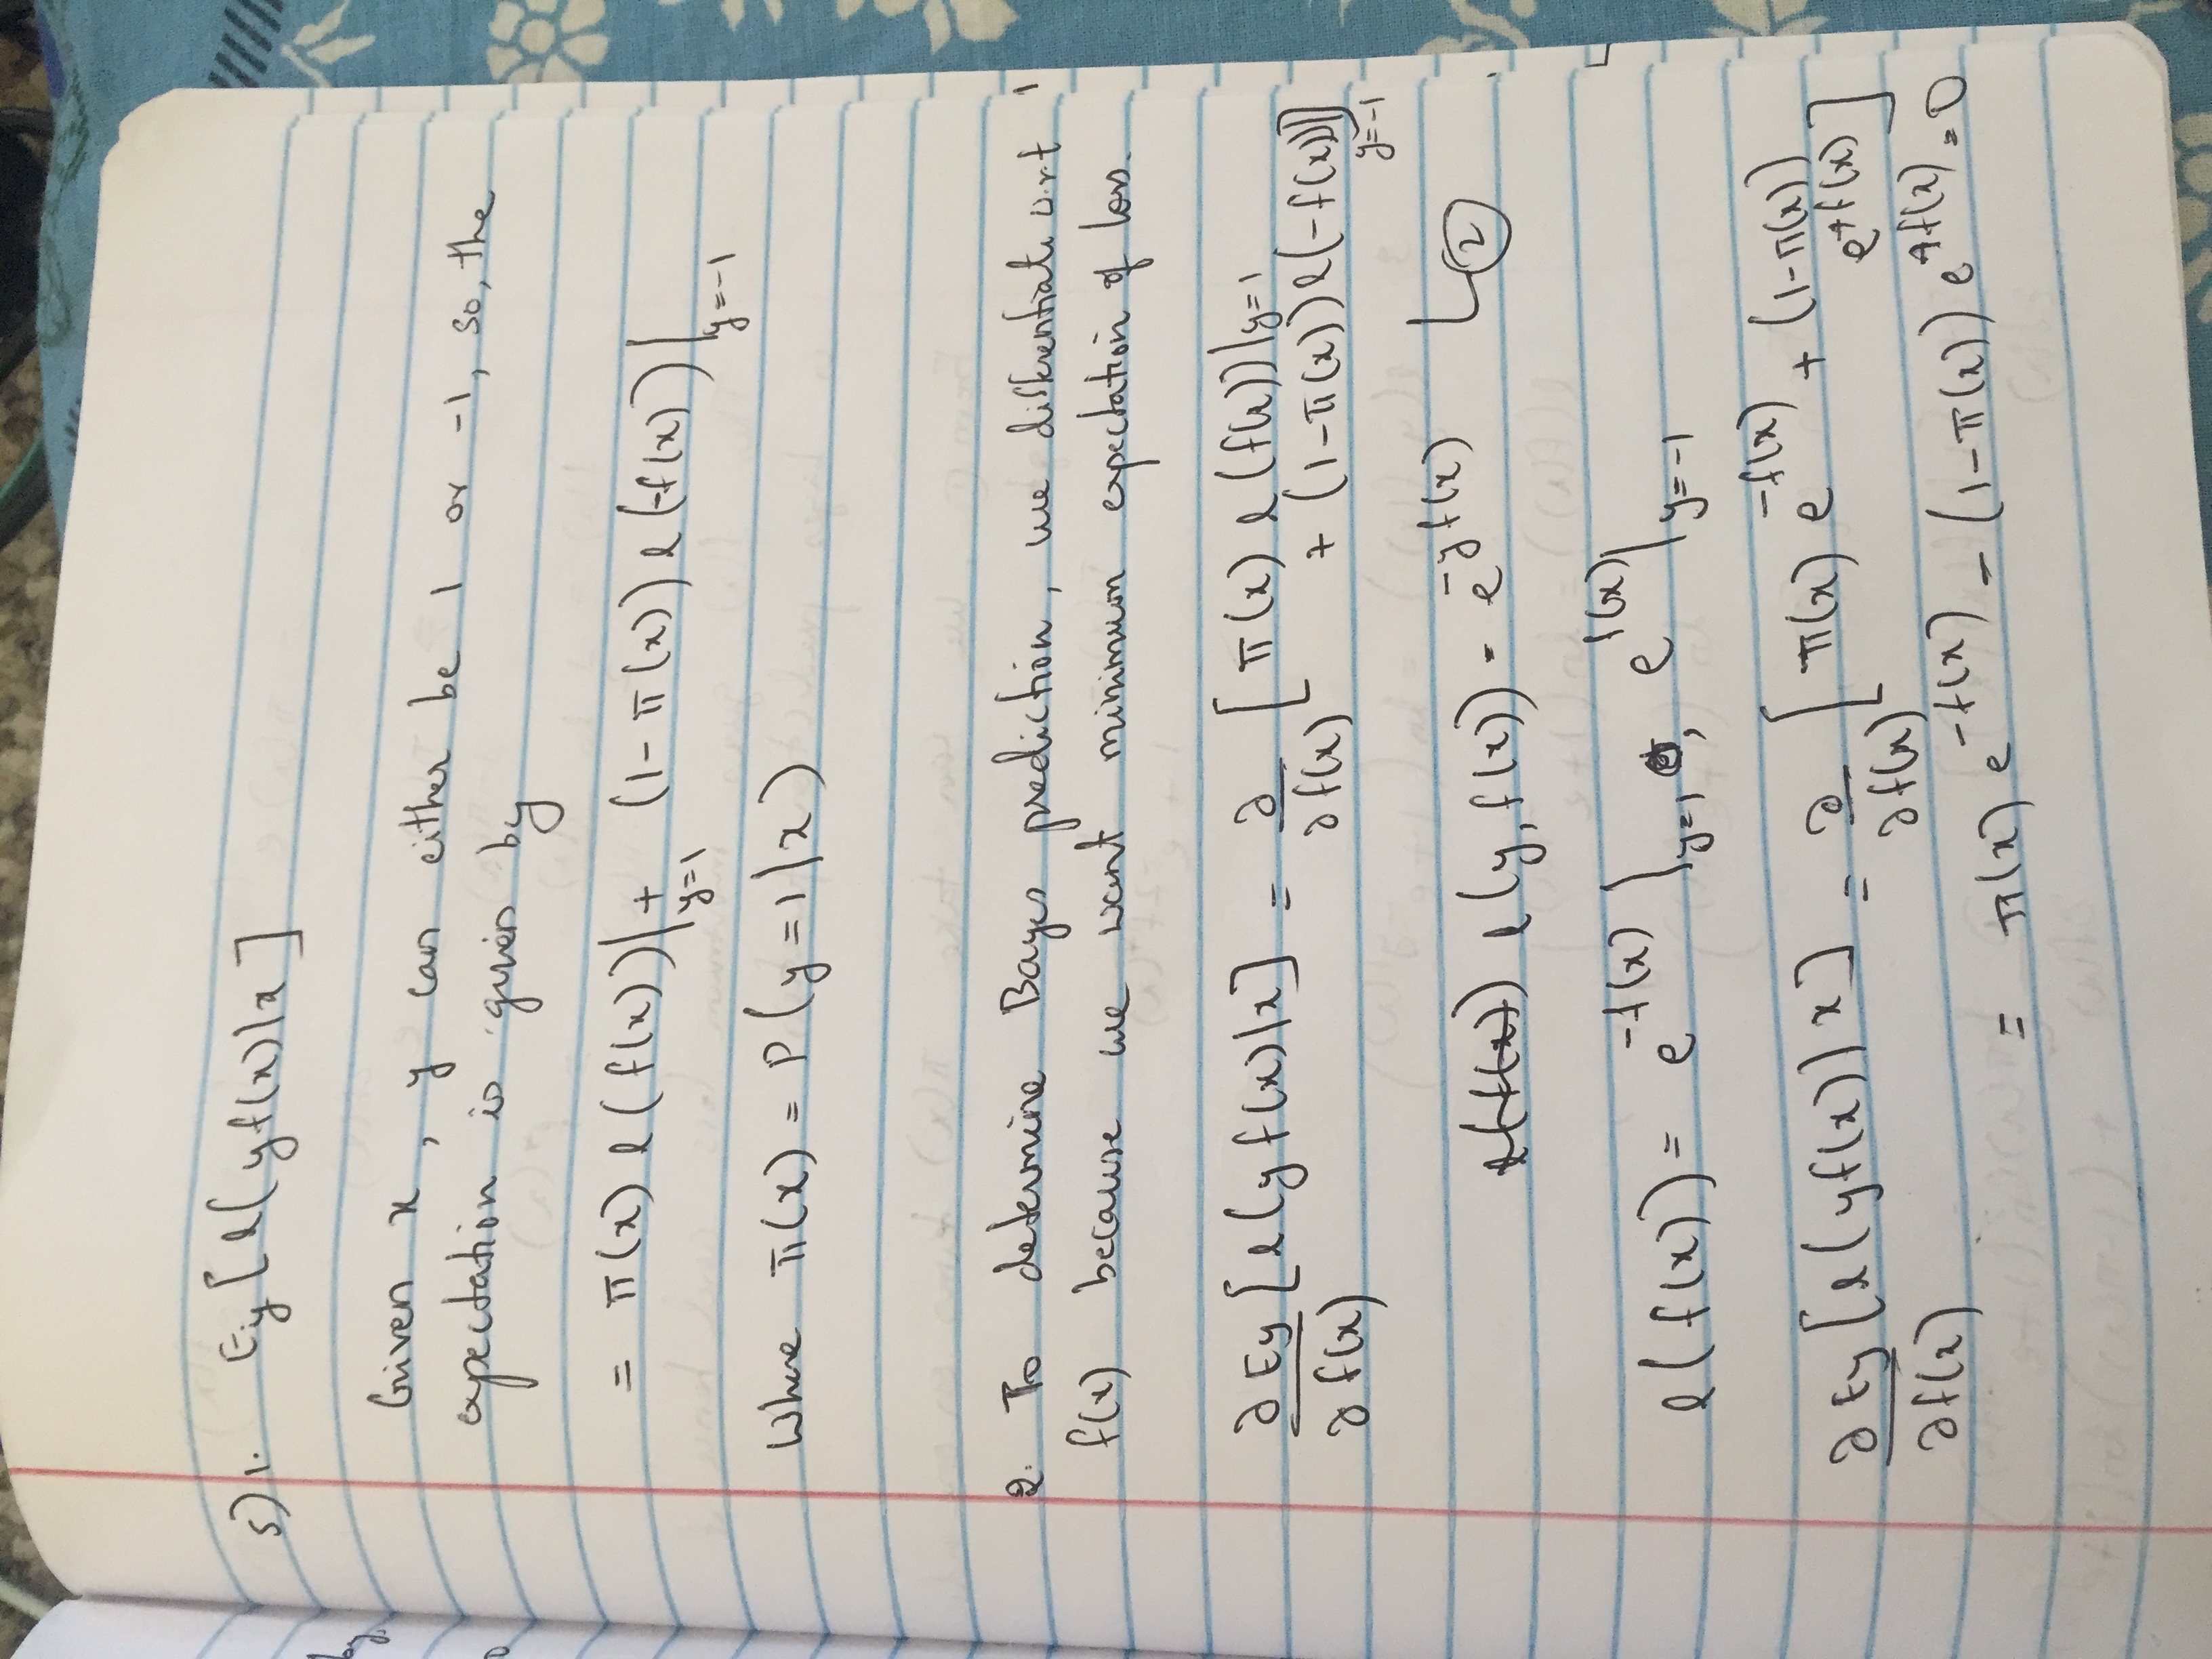 5) 1. Ey [ l( yf(x) | x ]
Given x, y can either be 1 or -1, so, the
expectation is given by
= π(x) l(f(x))|y=1 + (1-π(x)) l(-f(x))|y=-1
Where π(x) = P(y=1|x)
2. To determine Bayes prediction, we differentiate w.r.t
f(x) because we want minimum expectation of loss.
∂Ey/∂f(x) [l(yf(x)|x] = ∂/∂f(x) [π(x) l(f(x))|y=1
+ (1-π(x)) l(-f(x))|y=-1]
l(y, f(x)) = e^{-yf(x)} ②
l(f(x)) = e^{-f(x)}|y=1, e^{f(x)}|y=-1
∂Ey/∂f(x) [l(yf(x)) | x] = ∂/∂f(x) [π(x) e^{-f(x)} + (1-π(x))
e^{+f(x)}]
= π(x) e^{-f(x)} - (1-π(x)) e^{+f(x)} = 0